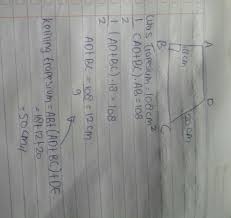 A
B
18cm
D
20cm
C
Luas trapesium = 108 cm²
1 (AD+BC).AB = 108
2
1 (AD+BC).18 = 108
2
AD+BC = 108 = 12 cm
9
Keliling trapesium = AB+(AD+BC)+DC
= 18+12+20
= 50 cm